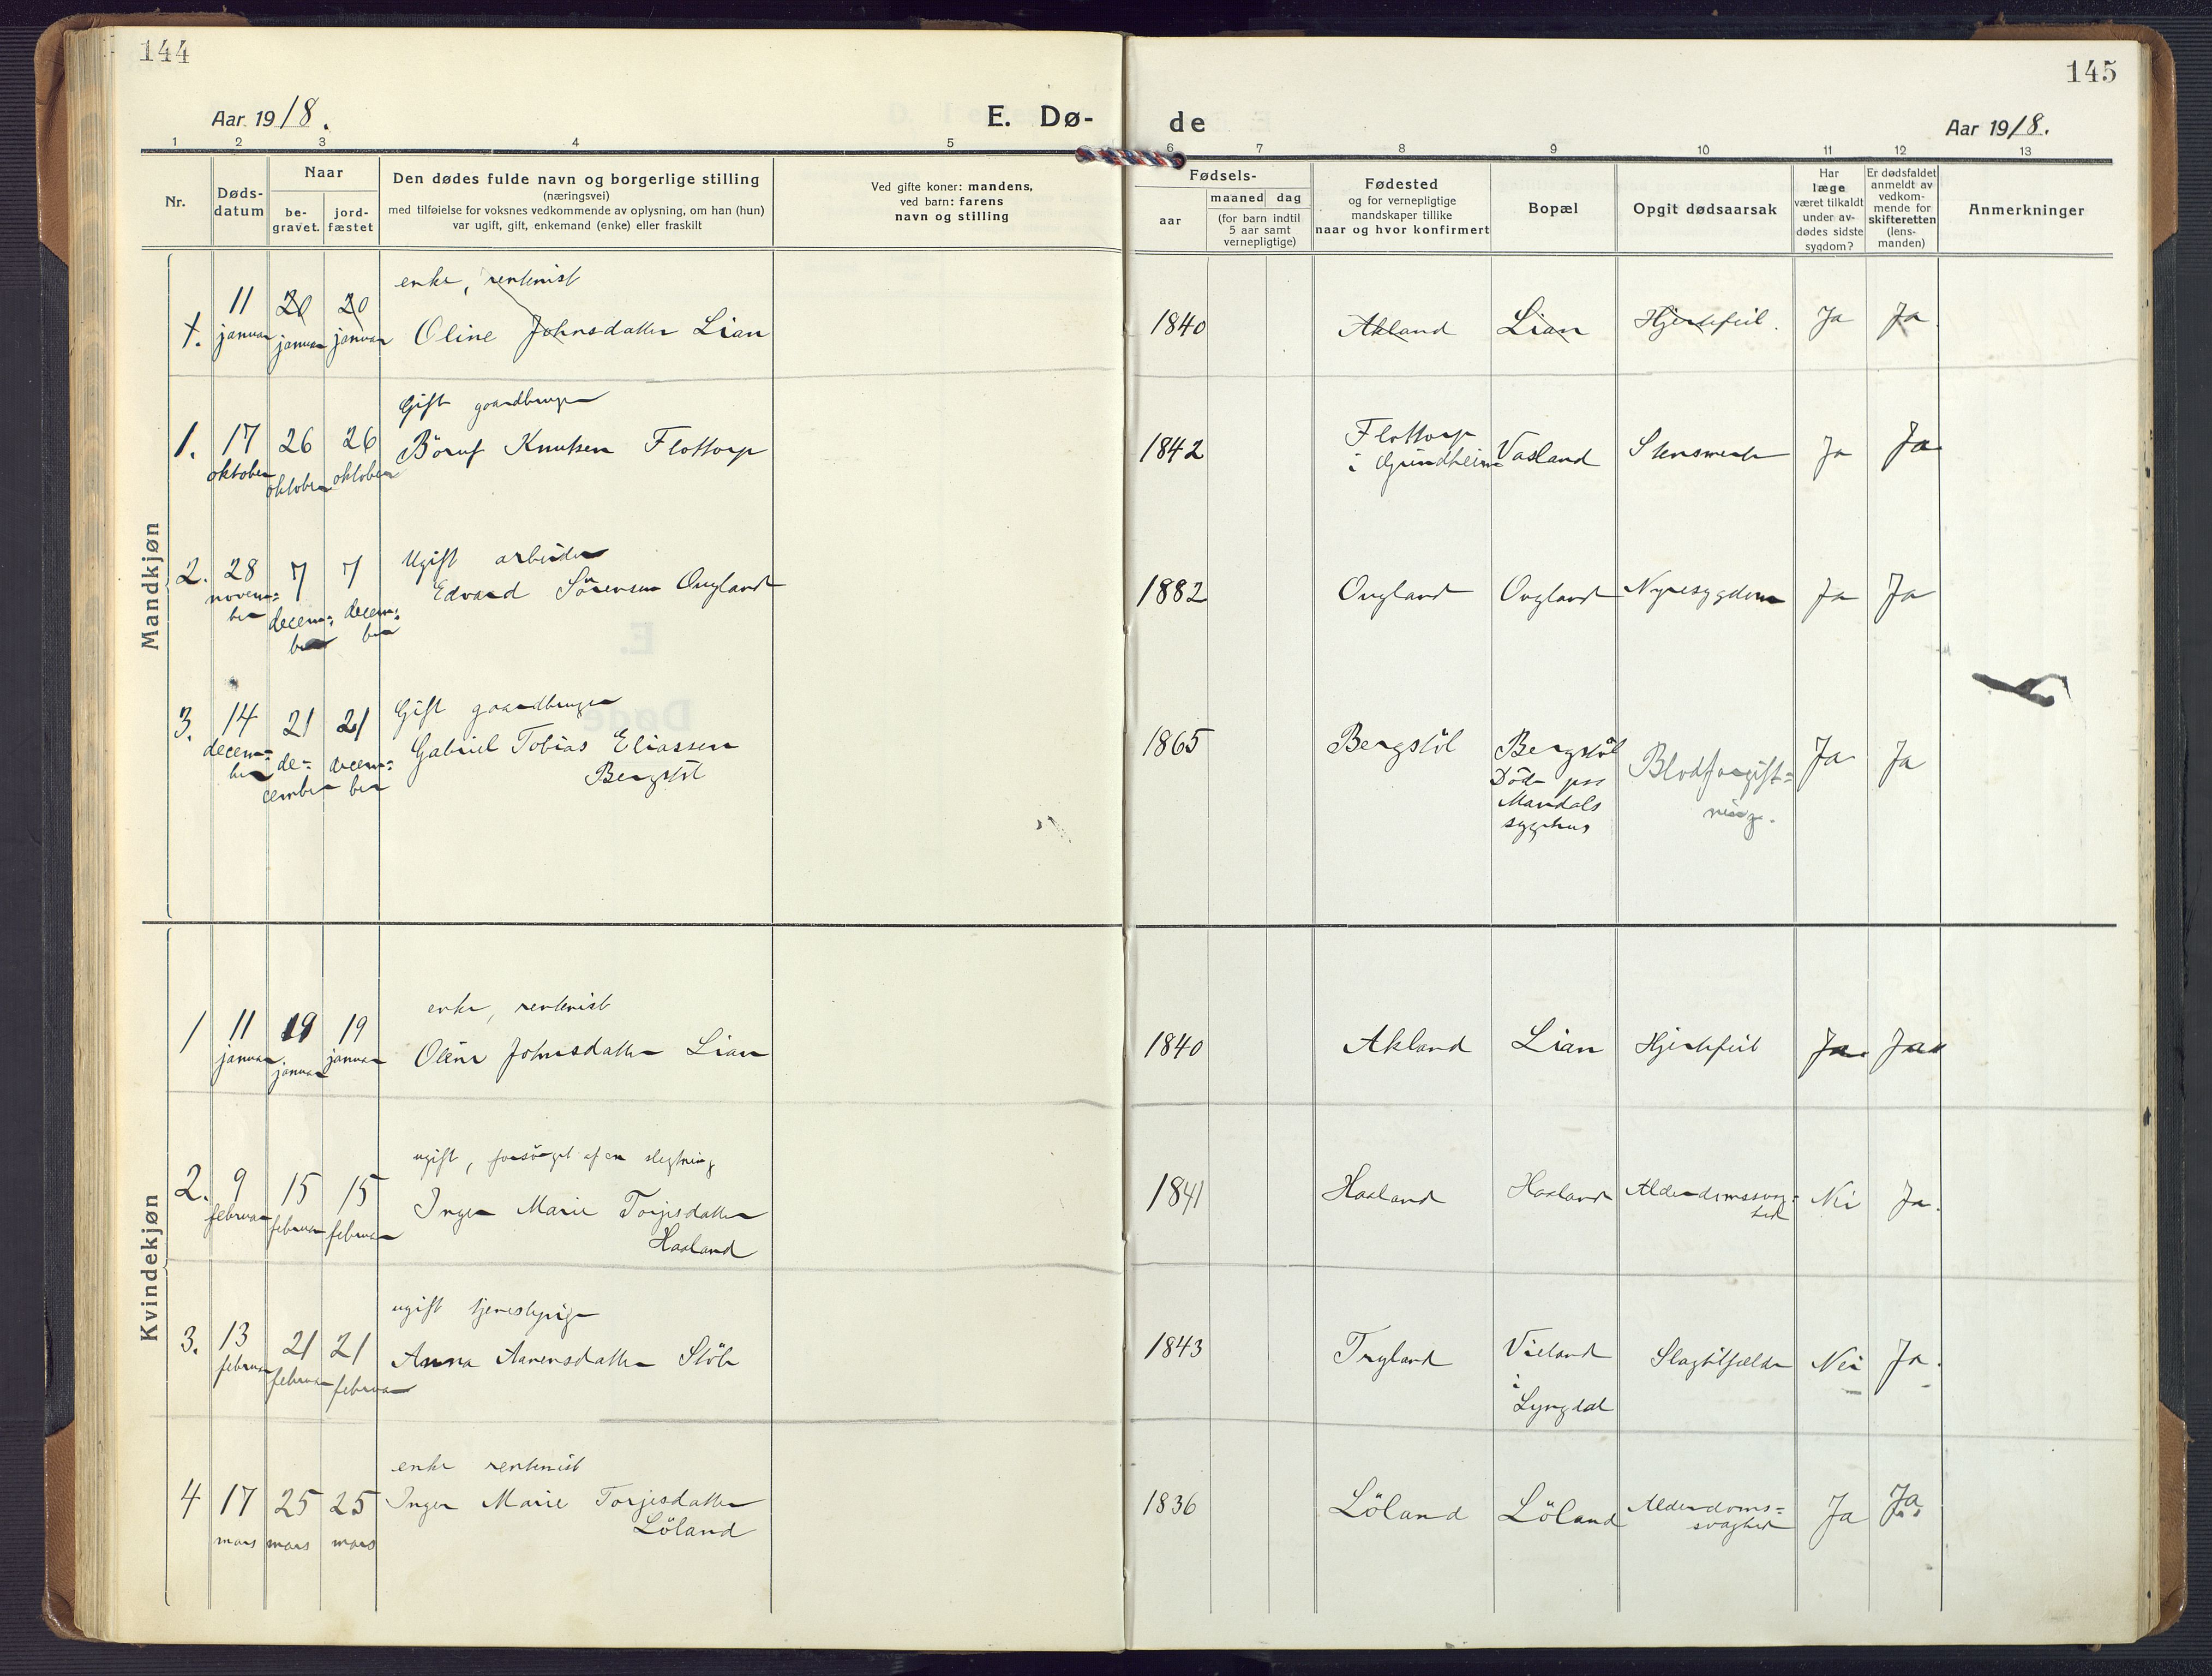 144
145
Aar 1918.
E. Dø-
de
Aar 1918.
1 2 3 4 5 6 7 8 9 10 11 12 13
Nr.
Døds-
datum
Naar
be-
gravet.
jord-
fæstet
Den dødes fulde navn og borgerlige stilling
(næringsvei)
med tilføielse for voksnes vedkommende av oplysning, om han (hun)
var ugift, gift, enkemand (enke) eller fraskilt
Ved gifte koner: mandens,
ved barn: farens
navn og stilling
Fødsels-
aar
maaned dag
(for barn indtil
5 aar samt
vernepligtige)
Fødested
og for vernepligtige
mandskaper tillike
naar og hvor konfirmert
Bopæl
Opgit dødsaarsak
Har
læge
været tilkaldt
under av-
dødes sidste
sygdom?
Er dødsfaldet
anmeldt av
vedkom-
mende for
skifteretten
(lens-
manden)
Anmerkninger
Mandkjøn
enke, rentenist
1. 11 20 20 Oline Johnsdatter Lian 1840 Akland Lian Hjertefeil. Ja Ja
januar januar januar
Gift gaardbruger
1. 17 26 26 Bõruf Knutsen Flottorp 1842 Flottorp Vasland Ja Ja
oktober oktober oktober i Grindheim
Ugift arbeider
2. 28 7 7 Edvard Sörensen Ougland 1882 Ougland Ougland Nyresygdom Ja Ja
novem= decem= decem=
ber ber ber
Gift gaardbruger
3. 14 21 21 Gabriel Tobias Eliassen 1865 Bergstöl Bergstöl Blodforgift= Ja Ja
decem= de= decem= Bergstöl Död paa ning.
ber cember ber Mandals
sygehus
Kvindekjøn
enke, rentenist
1 11 19 19 Oline Johnsdatter Lian 1840 Akland Lian Hjertefeil Ja Ja
januar januar januar
ugift, forsörget af en slegtning
2. 9 15 15 Inger Marie Torjesdatter 1841 Haaland Haaland Alderdomssvag= Nei Ja.
februar februar februar Haaland hed
ugift tjenestepige
3. 13 21 21 Anna Aanensdatter Stöle 1843 Tryland Vieland Slagtilfælde Nei Ja.
februar februar februar i
Lyngdal
enke rentenist
4 17 25 25 Inger Marie Torjesdatter 1836 Löland Löland Alderdoms= Ja Ja
mars mars mars Löland svaghed